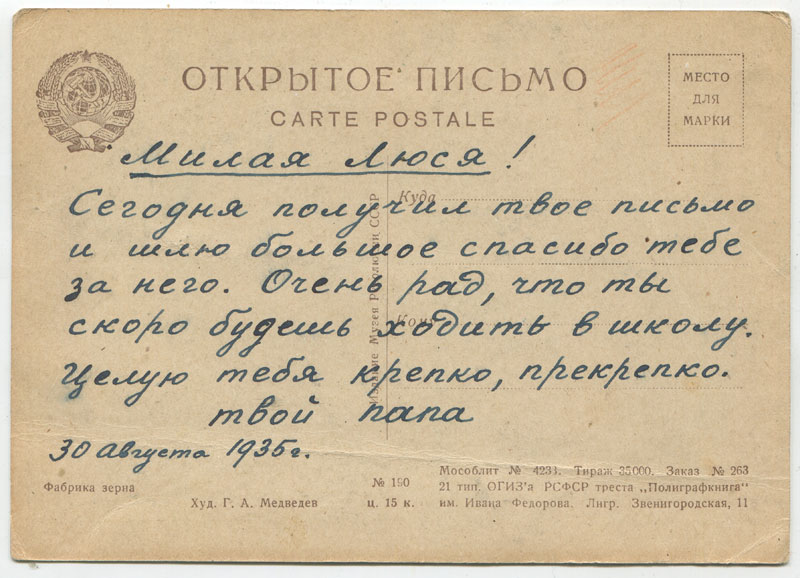 ОТКРЫТОЕ ПИСЬМО
CARTE POSTALE
МЕСТО
ДЛЯ
МАРКИ
Милая Люся!
Куда
Сегодня получил твое письмо
и шлю большое спасибо тебе
за него. Очень рад, что ты
Кому
скоро будешь ходить в школу.
Целую тебя крепко, прекрепко.
твой папа
30 августа 1935 г.
Издание Музея Революции СССР
Фабрика зерна
Худ. Г. А. Медведев
№ 190
ц. 15 к.
Мособлит № 4233. Тираж 35000. Заказ № 263
21 тип. ОГИЗ'а РСФСР треста „Полиграфкнига"
им. Ивана Федорова. Лнгр. Звенигородская, 11